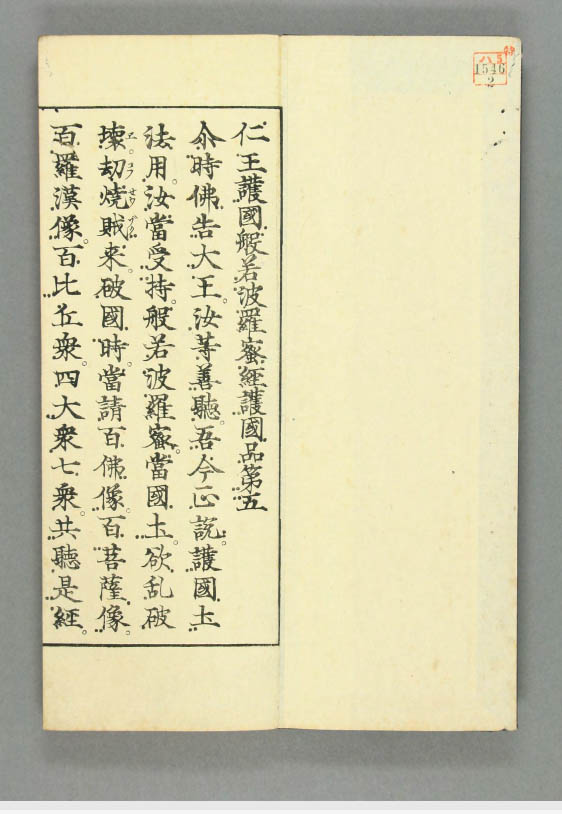 八５
1546
2
仁王護國般若波羅蜜經護國品第五
尒時佛告大王汝等善聽。吾今正說。護國土
法用。汝當受持。般若波羅蜜。當國土欲乱破
壞劫燒賊來。破國時。當請百佛像。百菩薩像。
百羅漢像。百比丘衆。四大衆七衆。共聽是經。